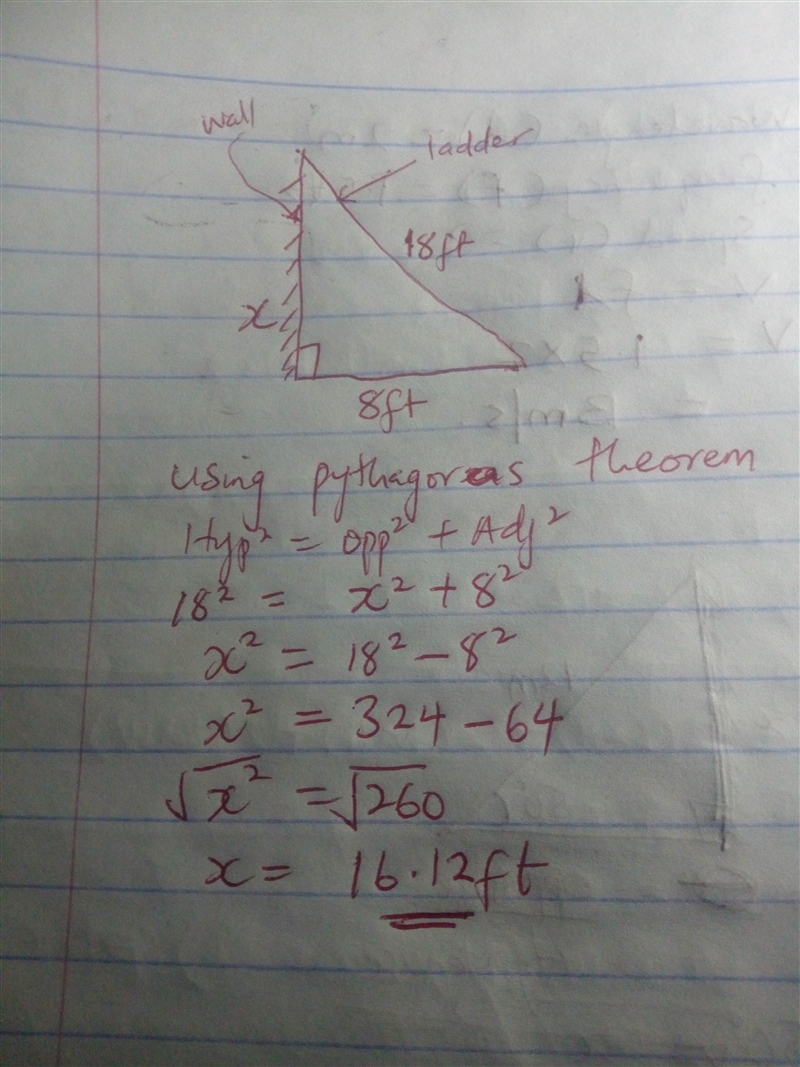 wall
ladder
18ft
x
8ft
Using pythagoras theorem
Hyp² = opp² + Adj²
18² = x² + 8²
x² = 18² - 8²
x² = 324 - 64
√x² = √260
x = 16.12ft